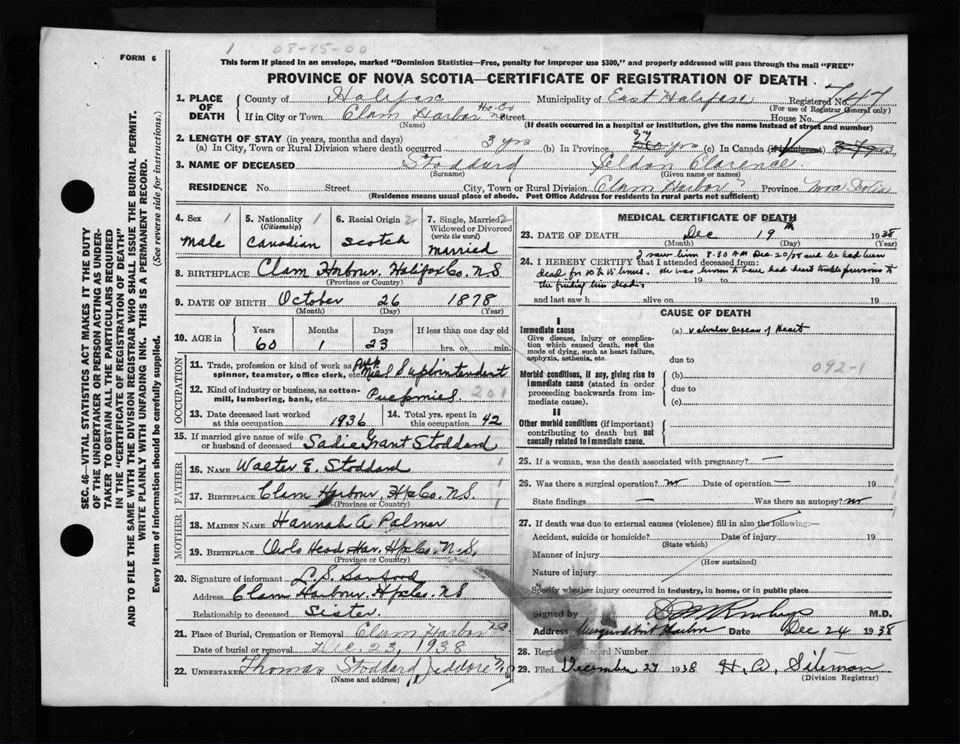 1 08-15-00
FORM 6
This form if placed in an envelope, marked "Dominion Statistics—Free, penalty for improper use $300," and properly addressed will pass through the mail "FREE"
PROVINCE OF NOVA SCOTIA—CERTIFICATE OF REGISTRATION OF DEATH
SEC. 46—VITAL STATISTICS ACT MAKES IT THE DUTY
OF THE UNDERTAKER OR PERSON ACTING AS UNDER-
TAKER TO OBTAIN ALL THE PARTICULARS REQUIRED
IN THE "CERTIFICATE OF REGISTRATION OF DEATH"
AND TO FILE THE SAME WITH THE DIVISION REGISTRAR WHO SHALL ISSUE THE BURIAL PERMIT.
WRITE PLAINLY WITH UNFADING INK. THIS IS A PERMANENT RECORD.
Every item of information should be carefully supplied. (See reverse side for instructions.)
1. PLACE OF DEATH County of Halifax Municipality of East Halifax Registered No. 747
(For use of Registrar General only)
If in City or Town Clam Harbor Hx. Co Street House No.
(Name) (If death occurred in a hospital or institution, give the name instead of street and number)
2. LENGTH OF STAY (in years, months and days)
(a) In City, Town or Rural Division where death occurred 3 yrs (b) In Province 57 yrs (c) In Canada (if immigrant)
3. NAME OF DECEASED Stoddard Seldon Clarence
(Surname) (Given name or names)
RESIDENCE No. Street City, Town or Rural Division Clam Harbor Province Nova Scotia
(Residence means usual place of abode. Post Office Address for residents in rural parts not sufficient)
4. Sex 1 Male
5. Nationality 1 (Citizenship) Canadian
6. Racial Origin 2 Scotch
7. Single, Married 2 Widowed or Divorced (write the word) Married
8. BIRTHPLACE Clam Harbour, Halifax Co. N.S
(Province or Country)
9. DATE OF BIRTH October 26 1878
(Month) (Day) (Year)
10. AGE in Years Months Days If less than one day old
60 1 23 hrs. or min.
OCCUPATION
11. Trade, profession or kind of work as spinner, teamster, office clerk, etc. Suptintendent
12. Kind of industry or business, as cotton-mill, lumbering, bank, etc. 201
13. Date deceased last worked at this occupation 1936 14. Total yrs. spent in this occupation 42
15. If married give name of wife or husband of deceased Sadie Grant Stoddard
FATHER
16. NAME Walter E. Stoddard
17. BIRTHPLACE Clam Harbour, Hfx Co. N.S.
(Province or Country)
MOTHER
18. MAIDEN NAME Hannah A Palmer
19. BIRTHPLACE Owls Head Har. Hfx Co. N.S.
(Province or Country)
20. Signature of informant L. S.
Address Clam Harbour, Hfx Co. N.S
Relationship to deceased Sister.
21. Place of Burial, Cremation or Removal Clam Harbor
Date of burial or removal Dec. 23, 1938
22. UNDERTAKER Thomas Stoddard Jeddore
(Name and address)
MEDICAL CERTIFICATE OF DEATH
23. DATE OF DEATH Dec 19th 1938
(Month) (Day) (Year)
24. I HEREBY CERTIFY that I attended deceased from: I saw him 8.30 AM Dec. 20/38 and he had been
dead for 10 to 15 hours. He was known to have had heart trouble previous to
the finding him dead.
19 to 19
and last saw h alive on 19
CAUSE OF DEATH
I
Immediate cause
Give disease, injury or complication which caused death, not the mode of dying, such as heart failure, asphyxia, asthenia, etc.
(a) Valvular Disease of Heart
due to
092-1
Morbid conditions, if any, giving rise to immediate cause (stated in order proceeding backwards from immediate cause).
(b)
due to
(c)
II
Other morbid conditions (if important) contributing to death but not causally related to immediate cause.
25. If a woman, was the death associated with pregnancy? —
26. Was there a surgical operation? no Date of operation — 19
State findings — Was there an autopsy? no
27. If death was due to external causes (violence) fill in also the following:—
Accident, suicide or homicide? Date of injury 19
(State which)
Manner of injury
(How sustained)
Nature of injury
Specify whether injury occurred in industry, in home, or in public place
Signed by M.D.
Address Musquodoboit Harbor Date Dec 24 1938
28. Registrar's Record Number
29. Filed December 27 1938 H. A. Siteman
(Division Registrar)